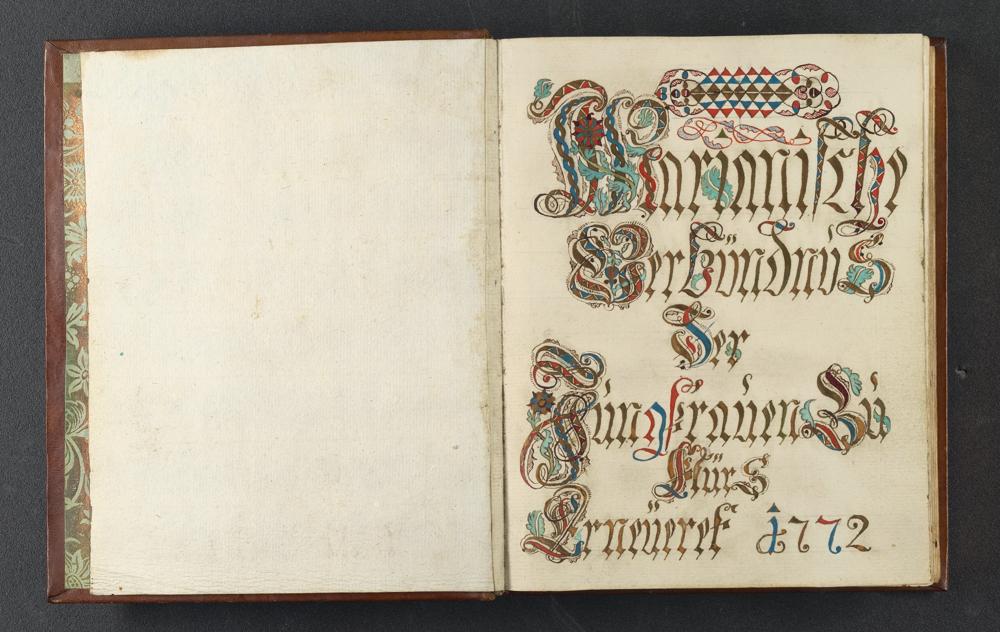 Marianische
Verbündnüs
Der
Jüngfraüen Zü
Flürs
Erneüeret 1772